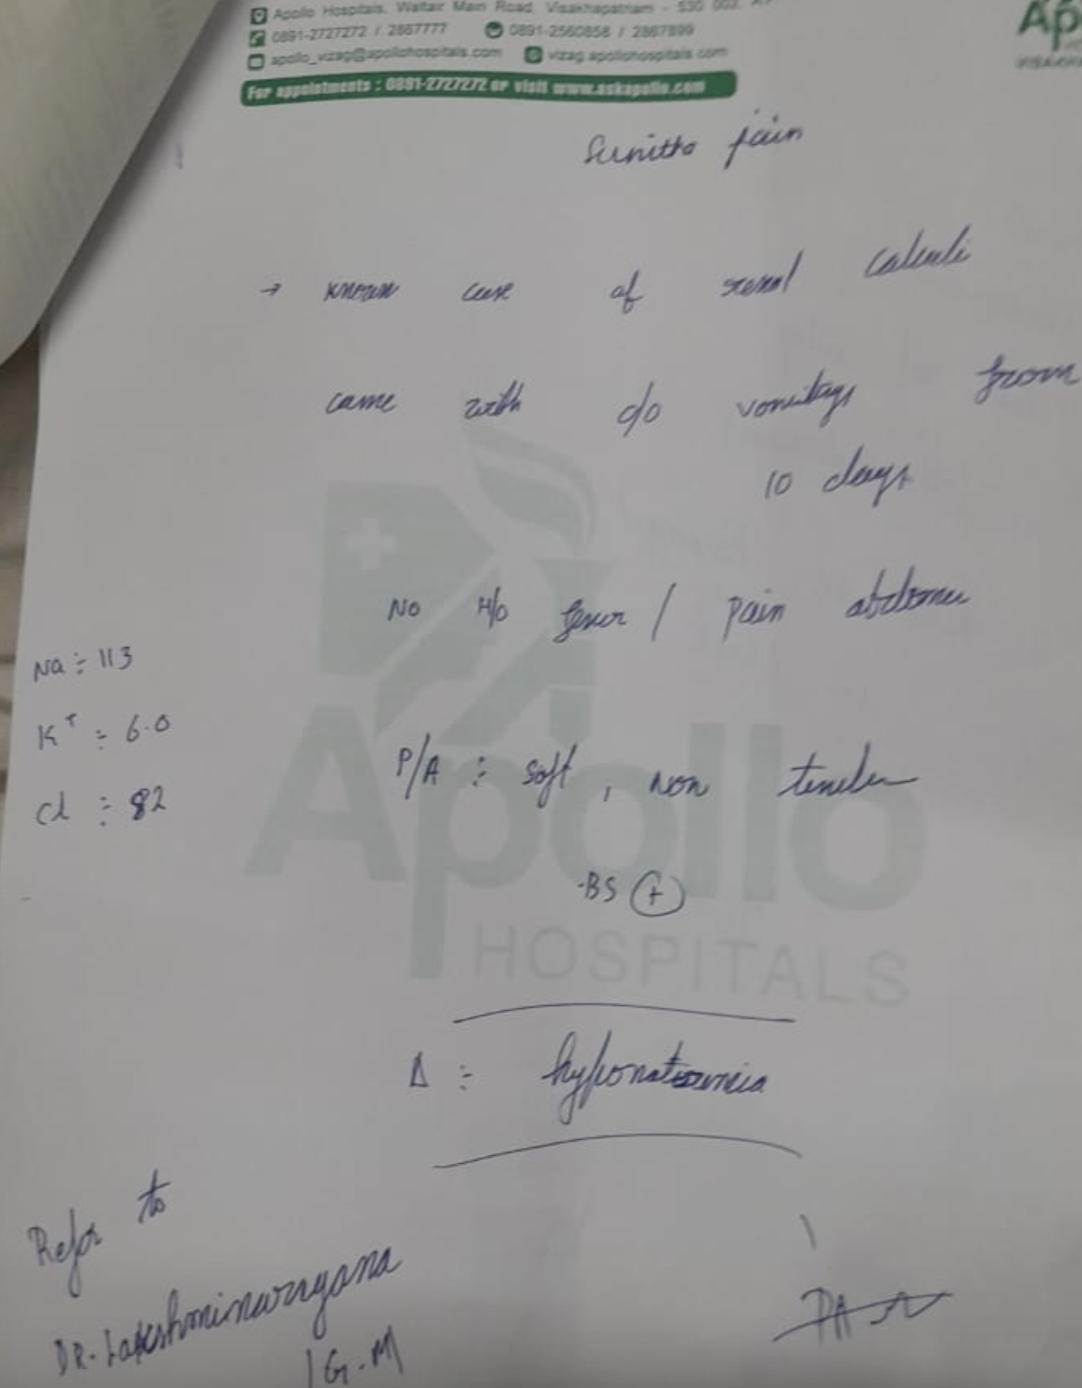 Apollo Hospitals, Waltair Main Road, Visakhapatnam - 530 002.
0891-2727272 / 2867777 0891-2560858 / 2867899
apollo_vizag@apollohospitals.com vizag.apollohospitals.com
For appointments : 0891-2727272 or visit www.askapollo.com
Ap
Sunitha jain
→ known case of renal calculi
came with c/o vomitings from
10 days
No H/o fever / pain abdomen
Na ÷ 113
K+ ÷ 6.0
Cl ÷ 82
P/A ÷ soft, non tender
BS (+)
Apollo
HOSPITALS
Δ ÷ hyponatremia
Refer to
DR. Lakshminarayana
G.M